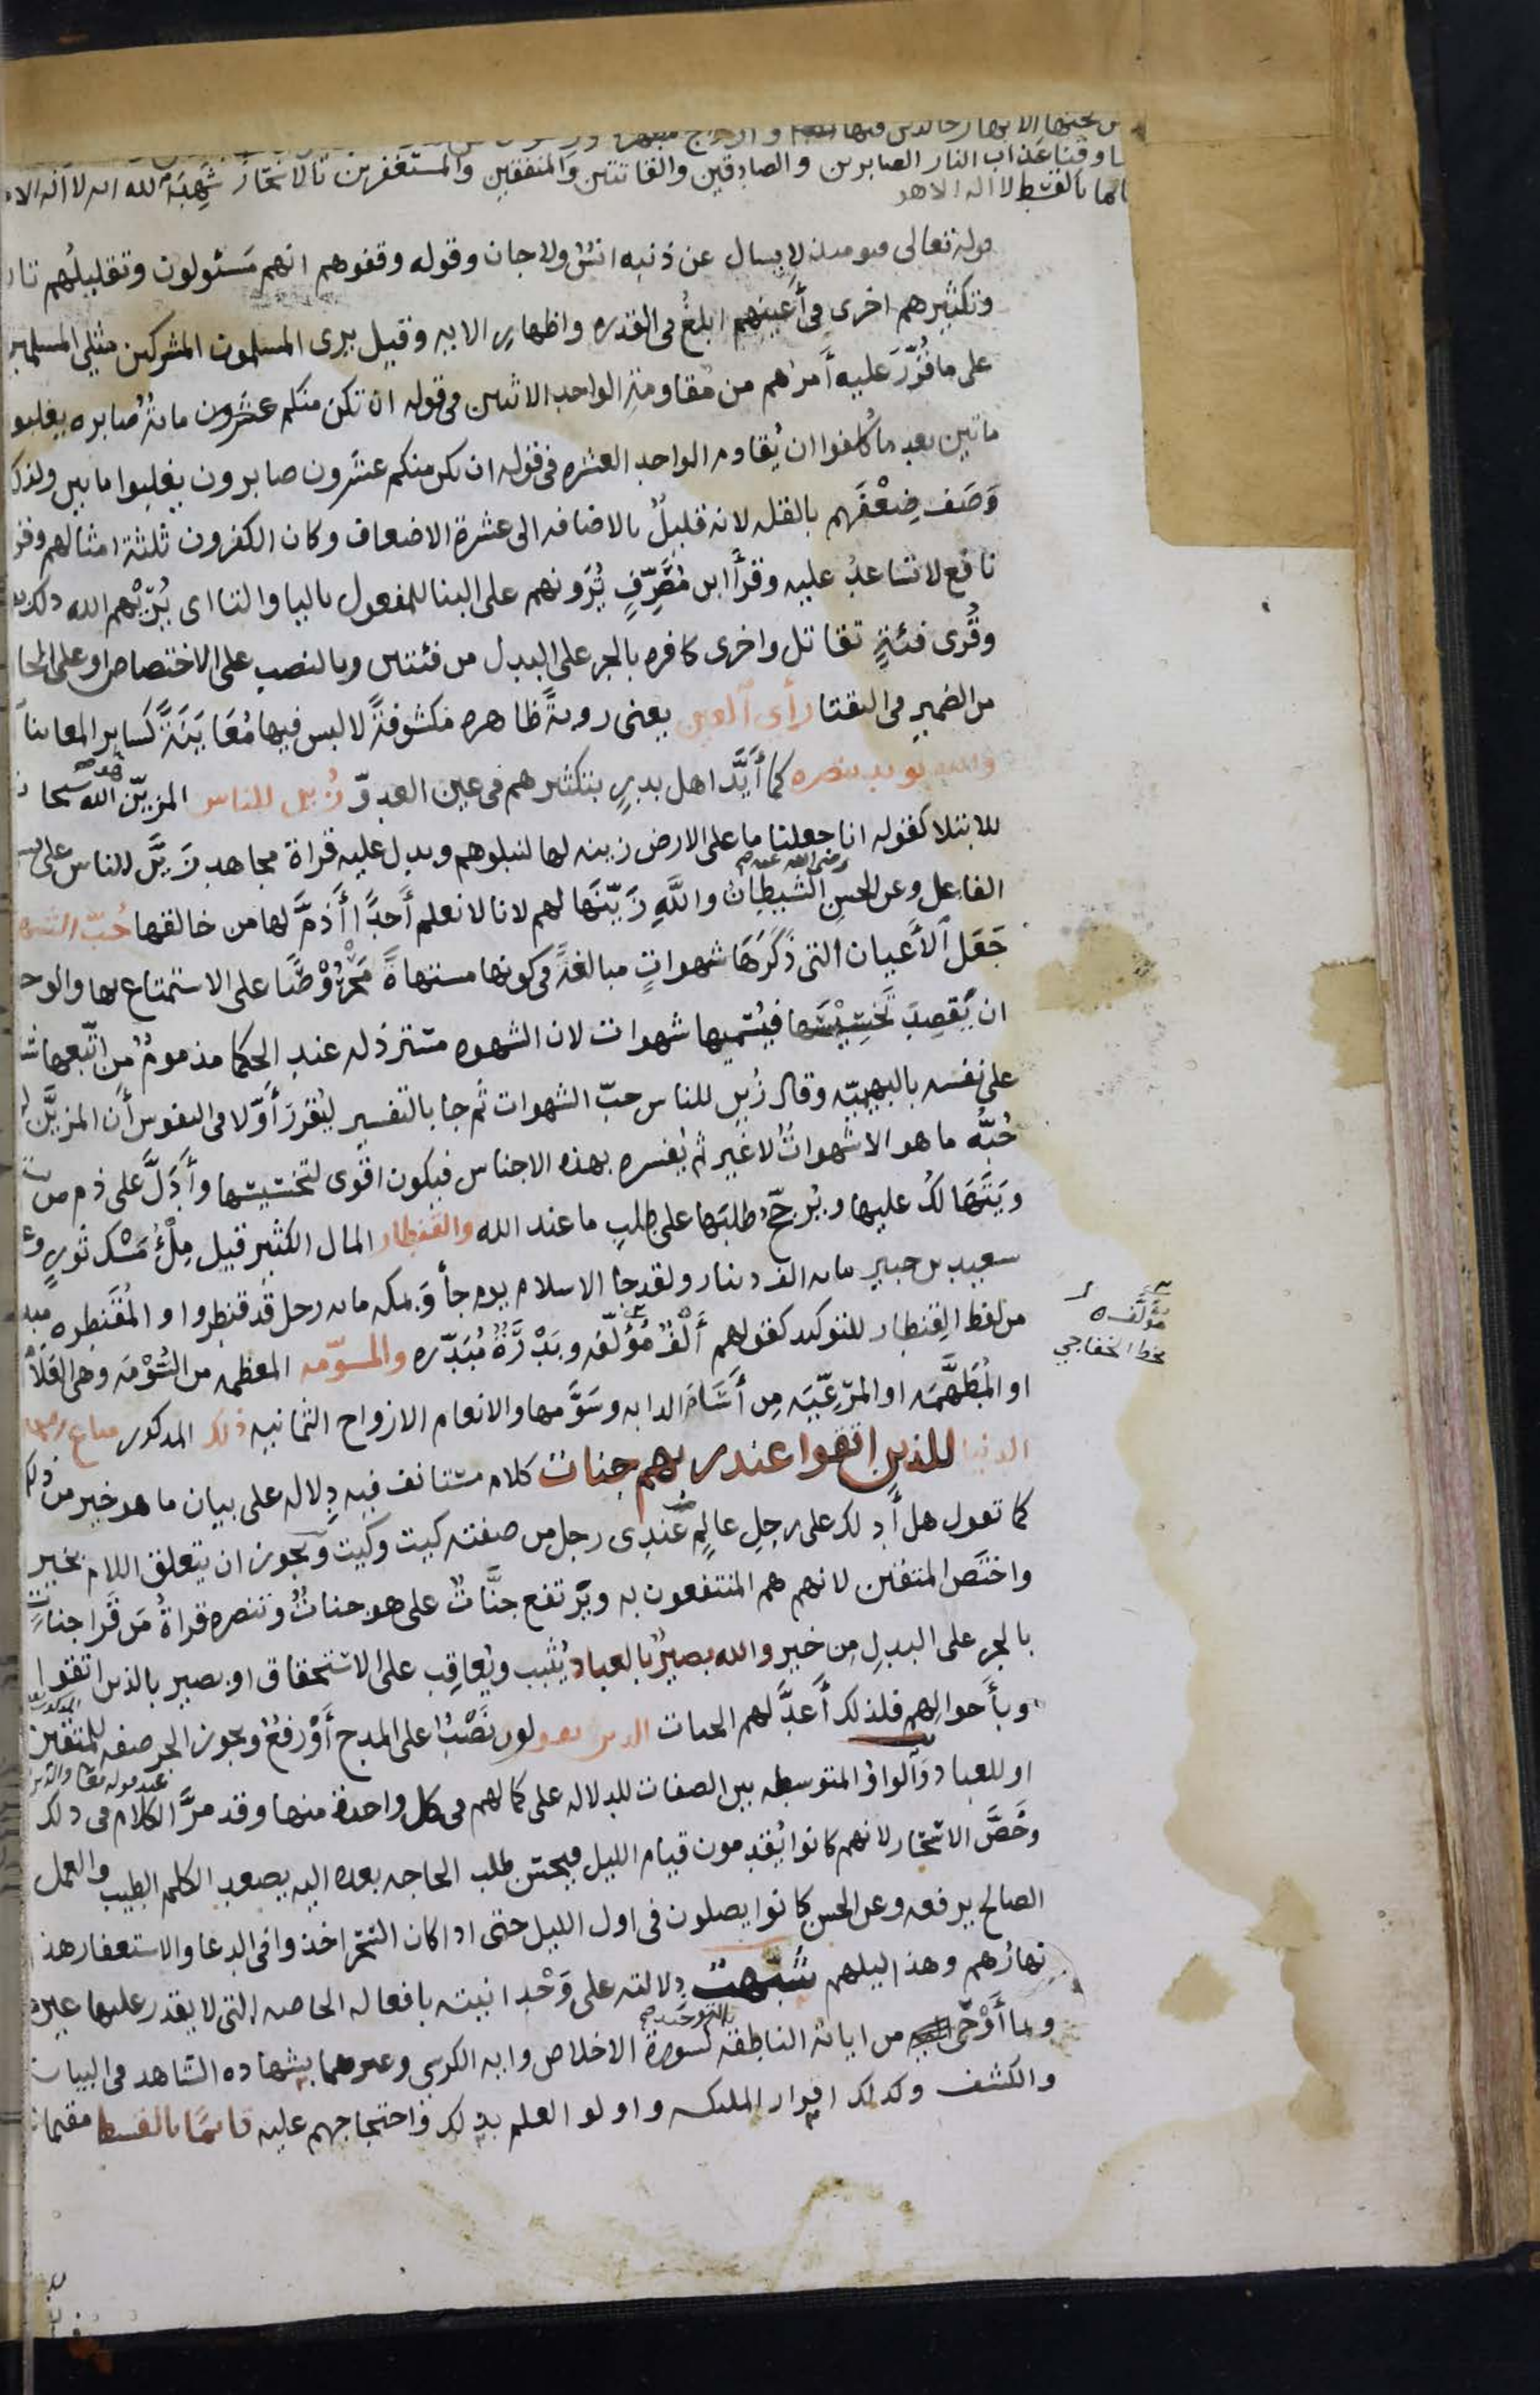 من تحتها الانهار خالدين فيها وازواج مطهره ورضوان من
وقنا عذاب النار الصابرين والصادقين والقانتين والمنفقين والمستغفرين بالاسحار شهد الله انه لا اله الا
بالقسط لا اله الا هو
قوله تعالى فيومئذ لا يسال عن ذنبه انس ولا جان وقوله وقفوهم انهم مسئولون وتقليلهم تار
وتكثيرهم اخرى في أعينهم ابلغ في القدره واظهار الايه وقيل يرى المسلمون المشركين مثلي المسلمين
على ما قُرّر عليه أمرهم من مقاومة الواحد الاثنين في قوله ان تكن منكم عشرون مائة صابره يغلبوا
مائتين بعد ما كُلفوا ان يُقاوم الواحد العشره في قوله ان يكن منكم عشرون صابرون يغلبوا مايتين ولذلك
وَصَف ضِعْفَهم بالقله لانه قليلٌ بالاضافه الى عشرة الاضعاف وكان الكفرون ثلثة امثالهم وقر
نافع لا تساعد عليه وقرأ ابن مُصَرّفٍ يُرَونهم على البنا للمفعول باليا والتا اى يُرِيْهم الله ذلك
وقُرى فئةٍ تقاتل واخرى كافره بالجر على البدل من فئتين وبالنصب على الاختصاص او على الحا
من الضمير في التقتا رأى ٱلعين يعنى روية ظاهره مكشوفةً لا لبس فيها مُعَايَنَةً كسائر المعاينا
والله يويد بنصره كما أيَّد اهل بدرٍ بتكثيرهم في عين العدوّ زُين للناس المزيّن هو الله سبحا
للابتلا كقوله انا جعلنا ما على الارض زينه لها لنبلوهم ويدل عليه قراة مجاهد زَيَّن للناس على
الفاعل وعن الحسن رضى الله عنه الشيطانُ واللَّهِ زَيّنَها لهم لانا لا نعلم أحدًا أذمَّ لها من خالقها حُبّ الشهو
جَعَل ٱلأعيان التى ذكرها شهواتٍ مبالغةً في كونها مشتهاةً مَحْرُوْصًا على الاستمتاع بها والوجه
ان يقصد تخسيسها فيسميها شهوات لان الشهوه مسترذله عند الحكما مذمومٌ من اتّبعها شا
على نفسه بالبهيميّه وقال زُين للناس حبّ الشهوات ثم جا بالتفسير ليُقرر أوّلا في النفوس أن المزيَّن
حُبُّه ما هو الا شهواتٌ لا غير ثم يُفسره بهذه الاجناس فيكون اقوى لتخسيسها وأدَلَّ على ذم من
ويَتَهالك عليها ويُرجّح طلبَها على طلبِ ما عند الله والقنطار المال الكثير قيل مِلْءُ مَسْك ثورٍ وعن
سعيد بن جبير مايه الف دينار ولقد جا الاسلام يوم جأ وَبمكه مايه رجل قد قنطروا والمُقَنطره مبنيه
من لفظ القِنطار للتوكيد كقولهم أَلْفٌ مُؤَلّفه وبَدْرَةٌ مُبَدّره والمسوّمه المعظمه من السُّوْمَه وهى العَلاَمَ
او المُطَهَّمَه او المرْعيَّه مِن أَسَامَ الدابه وسَوَّمها والانعام الازواج الثمانيه ذلك المذكور متاع الحياه
الدنيا للذين اتقوا عند ربهم جنات كلام مستانف فيه دلاله على بيان ما هو خير من ذلكم
كما تقول هل أدلك على رجلٍ عالمٍ عندى رجل من صفته كيت وكيت ويجوز ان يتعلق اللام بخير
واختص المتقين لانهم هم المنتفعون به ويرتفع جنَّاتٌ على هو جناتٌ وتنصره قراةُ مَن قرا جناتٍ
بالجر على البدل من خير والله بصيرٌ بالعباد يُثيب ويُعاقِب على الاستحقاق او بصير بالذين اتقوا
وبأحوالهم فلذلك أعدَّ لهم الجنات الذين يقولون نَصْبٌ على المدح أَوْ رفعٌ ويجوز الجر صفه للمتقين
او للعباد وَٱلواوُ المتوسطه بين الصفات للدلاله على كمالهم في كل واحدةٍ منها وقد مرَّ الكلام في ذلك
عند قوله تعا والذين
وخَصَّ الاسحار لانهم كانوا يُقدمون قيام الليل فيحسن طلب الحاجه بعده اليه يصعد الكلم الطيب والعمل
الصالح يرفعه وعن الحسن كانوا يصلون في اول الليل حتى اذا كان السَحَر اخذوا في الدعا والاستغفار هذا
نهارُهم وهذا ليلهم شبّهت دلالته على وَحْدانيته بافعاله الخاصه التى لا يقدر عليها غيره
وبما أَوْحى من اياته الناطقه بالتوحيد كسورة الاخلاص وايه الكرسى وغيرهما بشهاده الشاهد في البيان
والكشف وكذلك اقرار الملئكه واولو العلم بذلك واحتجاجهم عليه قائمًا بالقسط مقيما
مؤلَّفه
بخط الخفاجي